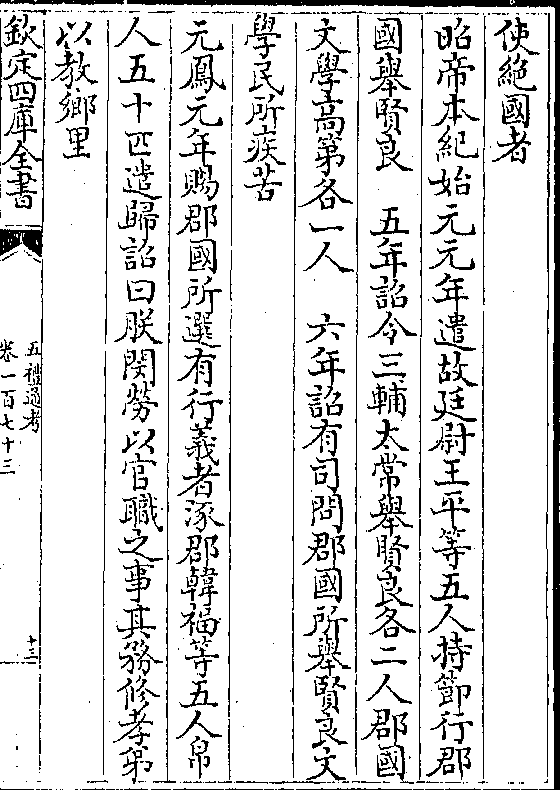 使絶國者
昭帝本紀始元元年遣故廷尉王平等五人持節行郡
國舉賢良　五年詔令三輔太常舉賢良各二人郡國
文學高第各一人　六年詔有司問郡國所舉賢良文
學民所疾苦
元鳳元年賜郡國所選有行義者涿郡韓福等五人帛
人五十匹遣歸詔曰朕閔勞以官職之事其務修孝弟
以教鄉里
欽定四庫全書
五禮通考
卷一百七十三
十三